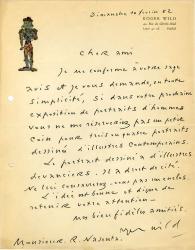 Dimanche 10 février 52
ROGER WILD
Cher ami
Je me conforme à votre sage
avis et je vous demande, en toute
simplicité, si dans votre prochaine
exposition de portraits d'hommes
vous ne me réserveriez pas un petit
coin pour trois ou quatre portraits
dessinés d'illustres contemporains.
Le portrait dessiné a d'illustres
devanciers. Il a droit de cité.
Ne lui
L'idée est bonne et digne de
retenir votre attention
mes bien fidèles amitiés
Roger Wild
Monsieur R. Nasenta.